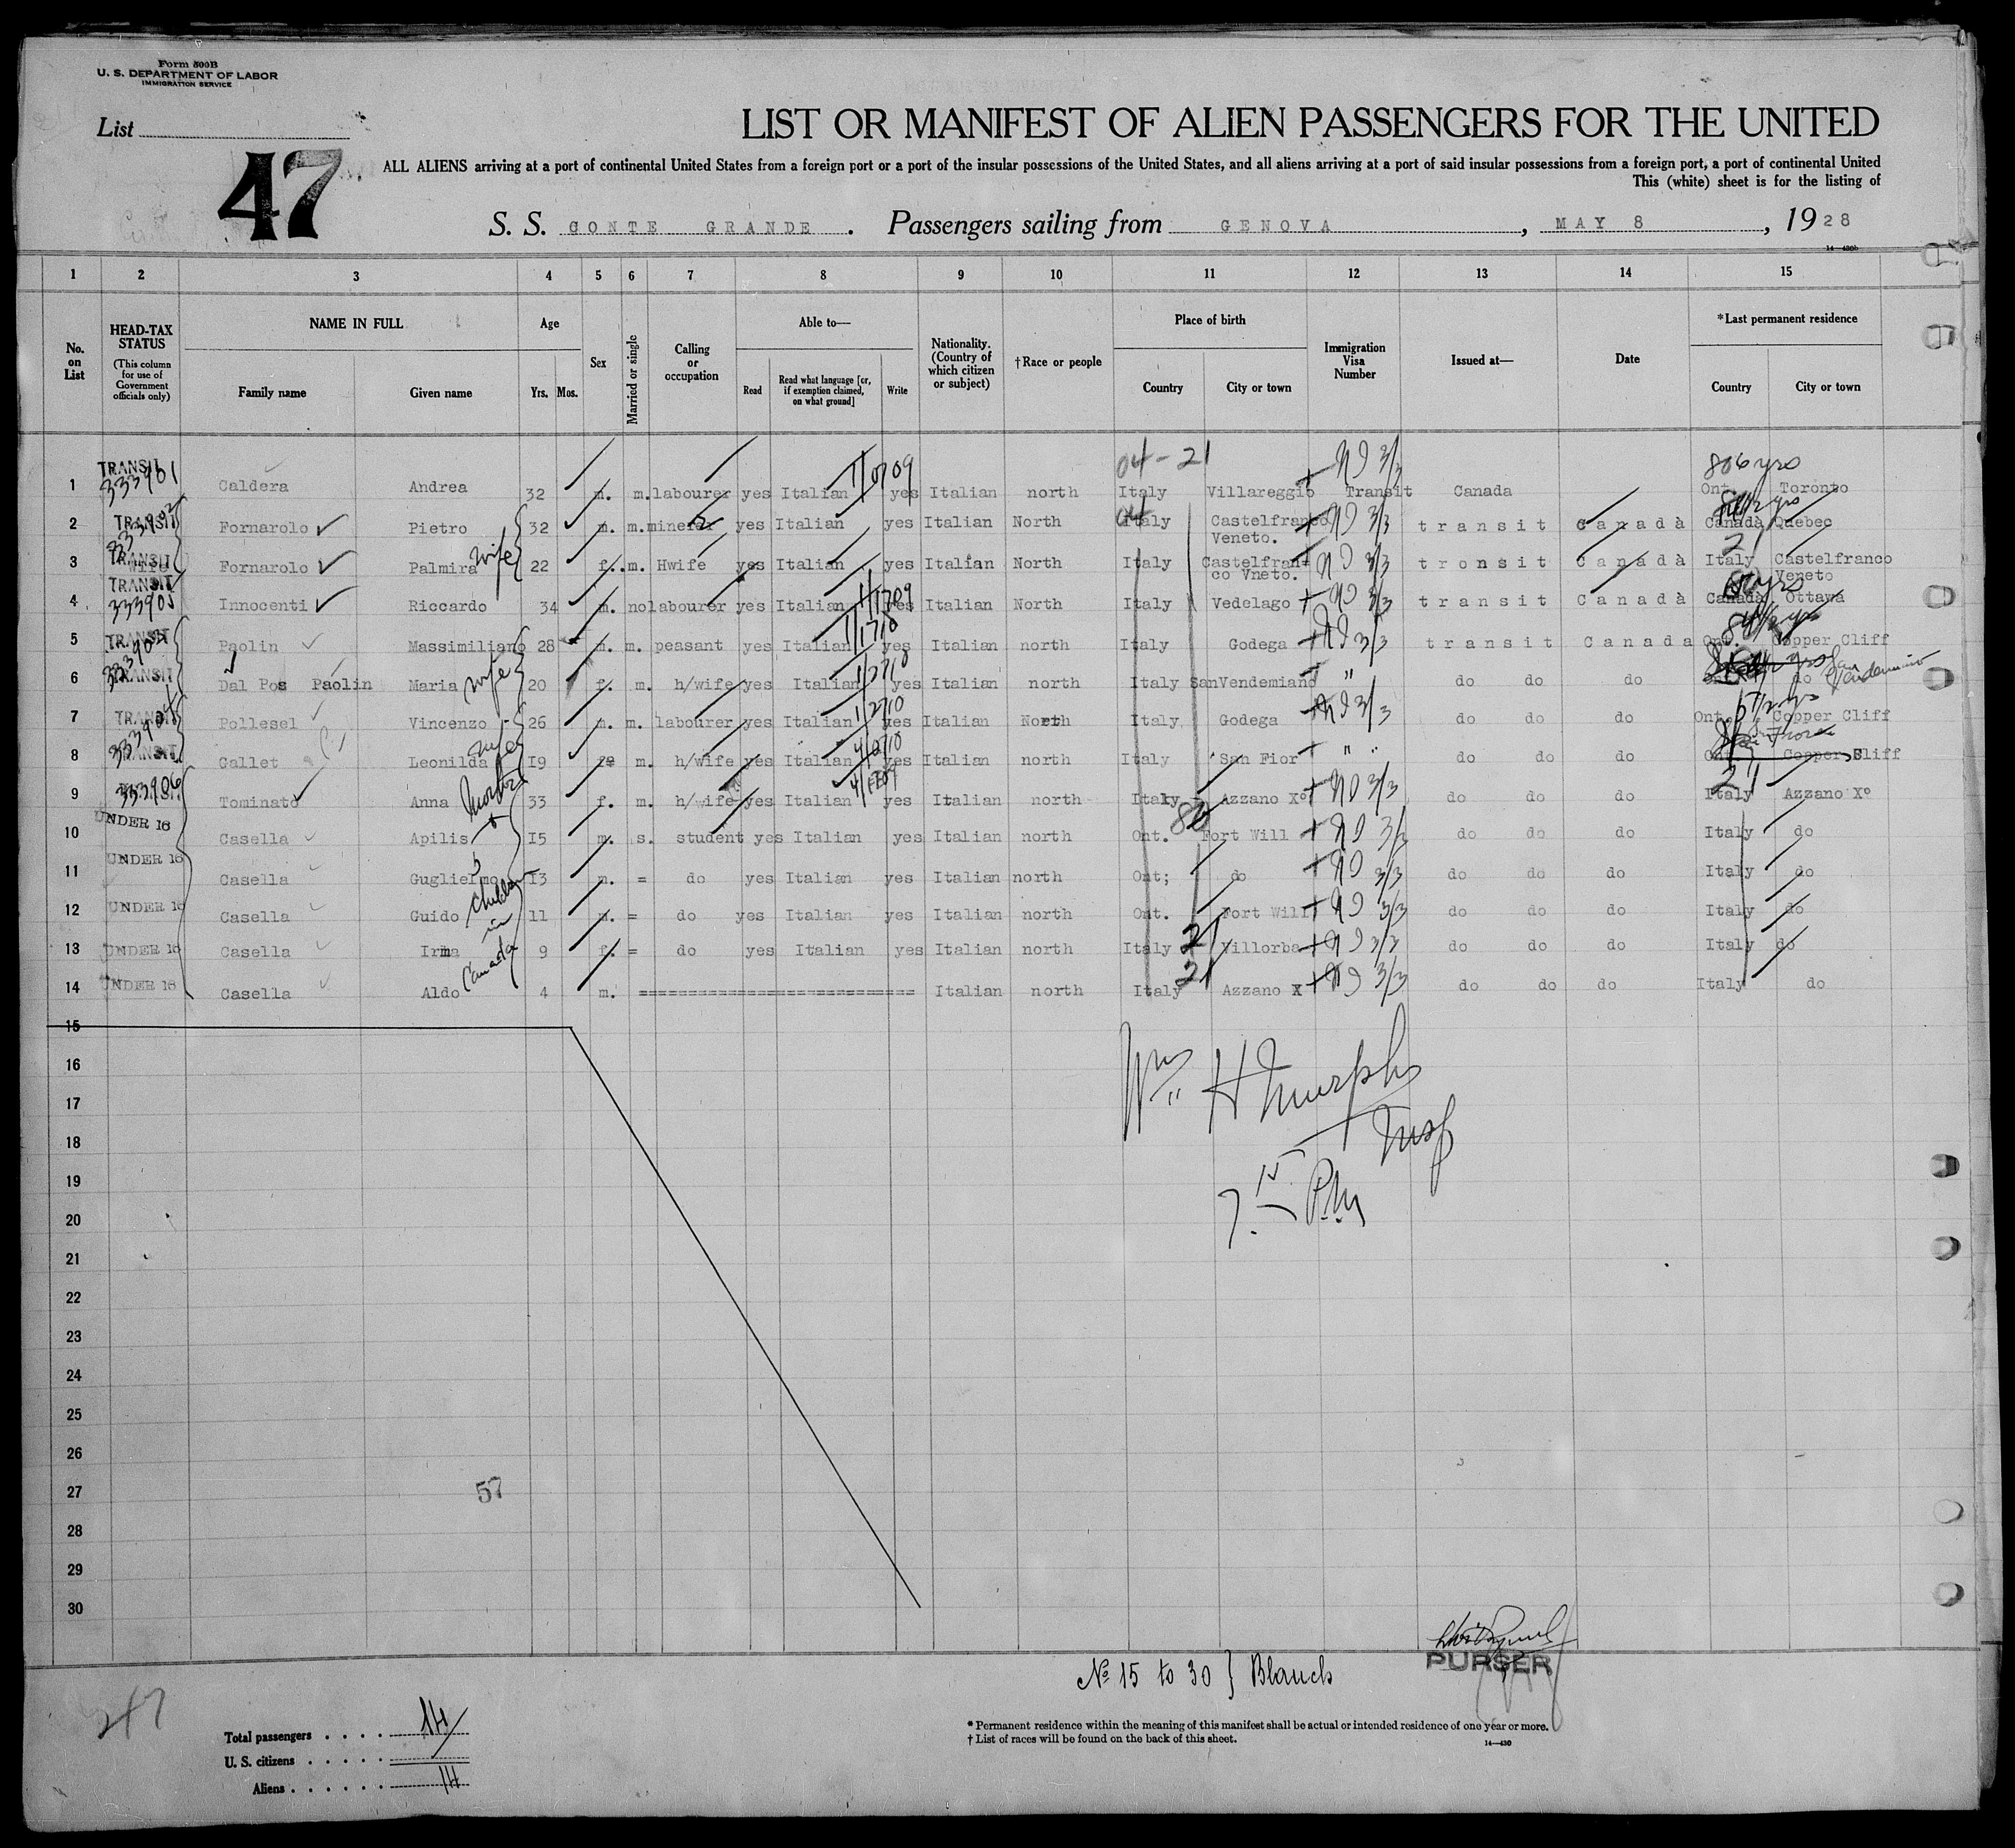 Form 500B
U. S. DEPARTMENT OF LABOR
IMMIGRATION SERVICE
List
47
LIST OR MANIFEST OF ALIEN PASSENGERS FOR THE UNITED
ALL ALIENS arriving at a port of continental United States from a foreign port or a port of the insular possessions of the United States, and all aliens arriving at a port of said insular possessions from a foreign port, a port of continental United
This (white) sheet is for the listing of
S. S. CONTE GRANDE. Passengers sailing from GENOVA, MAY 8, 1928
14—430b
1 2 3 4 5 6 7 8 9 10 11 12 13 14 15
No. on List
HEAD-TAX STATUS (This column for use of Government officials only)
NAME IN FULL Family name Given name
Age Yrs. Mos.
Sex
Married or single
Calling or occupation
Able to— Read Read what language [or, if exemption claimed, on what ground] Write
Nationality. (Country of which citizen or subject)
†Race or people
Place of birth Country City or town
Immigration Visa Number
Issued at—
Date
*Last permanent residence Country City or town
04-21 806 yrs
1 TRANSIT 333901 Caldera Andrea 32 m. m. labourer yes Italian yes Italian north Italy Villareggio Transit Canada Ont. Toronto
2 TRANSIT Fornarolo Pietro 32 m. m. miner yes Italian yes Italian North Italy Castelfranco Veneto. transit Canadà Canadà Quebec
3 TRANSIT Fornarolo Palmira wife 22 f. m. Hwife yes Italian yes Italian North Italy Castelfranco Vneto. tronsit Canadà Italy Castelfranco Veneto
4 TRANSIT 333905 Innocenti Riccardo 34 m. no labourer yes Italian yes Italian North Italy Vedelago transit Canadà Canadà Ottawa
5 TRANSIT Paolin Massimiliano 28 m. m. peasant yes Italian yes Italian north Italy Godega transit Canada Ont. Copper Cliff
6 TRANSIT Dal Pos Paolin Maria wife 20 f. m. h/wife yes Italian yes Italian north Italy San Vendemiano " do do do do San Vendemiano
7 TRANSIT Pollesel Vincenzo 26 m. m. labourer yes Italian yes Italian North Italy Godega do do do Ont. Copper Cliff
8 TRANSIT Gallet Leonilda wife I9 m. h/wife yes Italian yes Italian north Italy San Fior " " do do do Ont. Copper Cliff
9 333906 Tominato Anna Mother 33 f. m. h/wife yes Italian yes Italian north Italy Azzano X° do do do Italy Azzano X°
10 UNDER 16 Casella Apilis + I5 m. s. student yes Italian yes Italian north Ont. Fort Will do do do Italy do
11 UNDER 16 Casella Guglielmo 5 I3 m. = do yes Italian yes Italian north Ont; do do do do Italy do
12 UNDER 16 Casella Guido children 11 m. = do yes Italian yes Italian north Ont. Fort Will do do do Italy do
13 UNDER 16 Casella Irma in 9 f. = do yes Italian yes Italian north Italy Villorba do do do Italy do
14 UNDER 16 Casella Aldo Canada 4 m. ========================== Italian north Italy Azzano X do do do Italy do
15
16
17
18
19
20
21
22
23
24
25
26
27
28
29
30
Wm H Murphy
Insp
P.M.
57
PURSER
No 15 to 30 } Blanck
47
Total passengers . . . . 14
U. S. citizens . . . . .
Aliens . . . . . . 14
* Permanent residence within the meaning of this manifest shall be actual or intended residence of one year or more.
† List of races will be found on the back of this sheet.
14—430